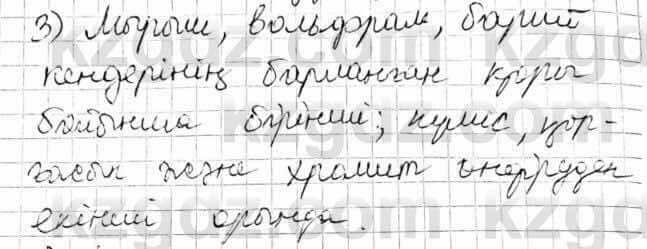 3) Мырыш, вольфрам, барий
кендерінің барланған қоры
бойынша бірінші; күміс, қор-
ғасын және хромит өндіруден
екінші орында.